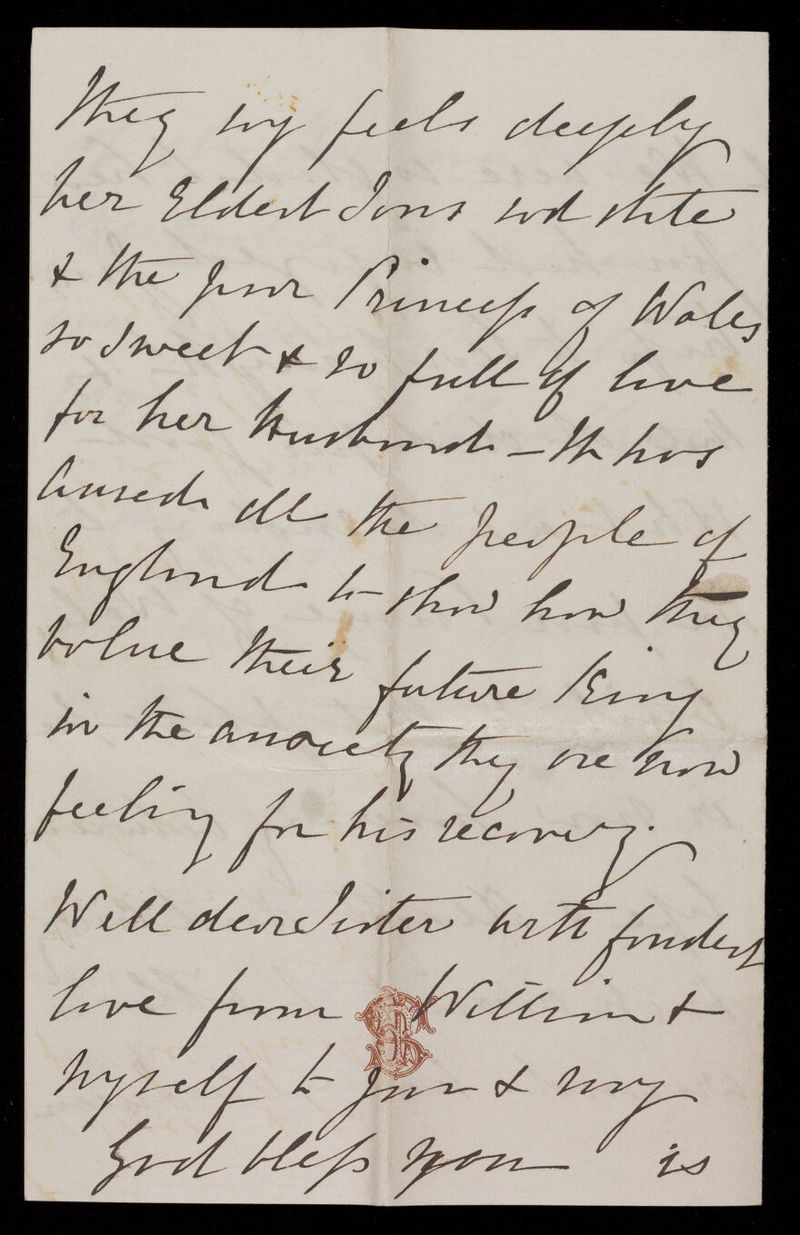 they say feels deeply
her Eldest Sons sad state
& the poor Princess of Wales
so Sweet & so full of love
for her Husband – It has
caused all the people of
England to show how they
value their future King
in the anxiety they are now
feeling for his recovery.
Well dear Sister with fondest
love from William &
myself to you & may
God bless you is